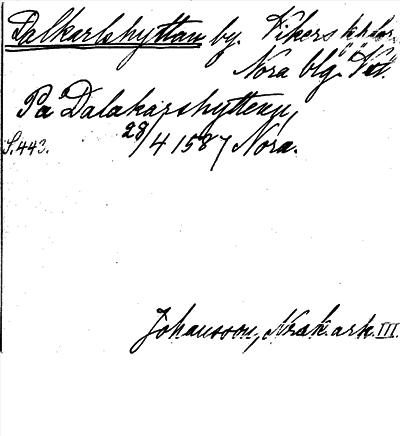 Dalkarlshyttan by. Vikers
Nora blg. Vstm.
På Dalakarshyttenn,
S. 443. 28/4 1587 Nora.
Johansson, Norask. ark. III.